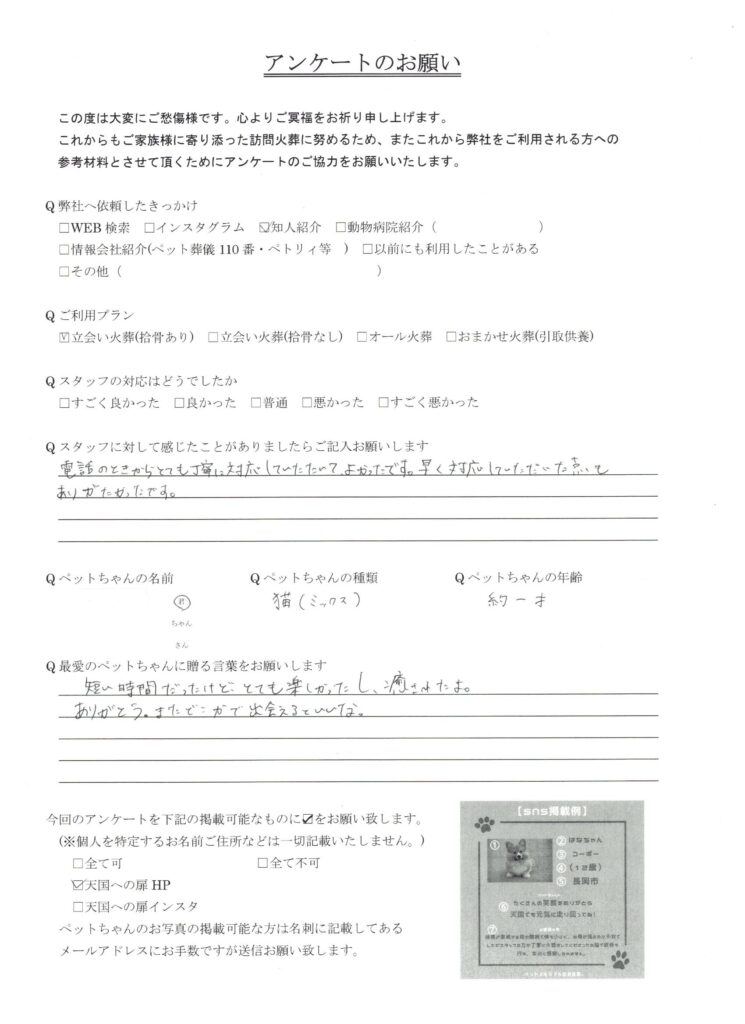 アンケートのお願い
この度は大変にご愁傷様です。心よりご冥福をお祈り申し上げます。
これからもご家族様に寄り添った訪問火葬に努めるため、またこれから弊社をご利用される方への
参考材料とさせて頂くためにアンケートのご協力をお願いいたします。
Q 弊社へ依頼したきっかけ
□WEB 検索 □インスタグラム ☑知人紹介 □動物病院紹介（ ）
□情報会社紹介(ペット葬儀 110 番・ペトリィ等 ) □以前にも利用したことがある
□その他（ ）
Q ご利用プラン
☑立会い火葬(拾骨あり) □立会い火葬(拾骨なし) □オール火葬 □おまかせ火葬(引取供養)
Q スタッフの対応はどうでしたか
□すごく良かった □良かった □普通 □悪かった □すごく悪かった
Q スタッフに対して感じたことがありましたらご記入お願いします
電話のときからとても丁寧に対応していただいて、よかったです。早く対応していただいた点も
ありがたかったです。
Q ペットちゃんの名前 Q ペットちゃんの種類 Q ペットちゃんの年齢
君 猫(ミックス) 約一才
ちゃん
さん
Q 最愛のペットちゃんに贈る言葉をお願いします
短い時間だったけど、とても楽しかったし、癒されたよ。
ありがとう。またどこかで出会えるといいな。
今回のアンケートを下記の掲載可能なものに☑をお願い致します。
(※個人を特定するお名前ご住所などは一切記載いたしません。)
□全て可 □全て不可
☑天国への扉 HP
□天国への扉インスタ
ペットちゃんのお写真の掲載可能な方は名刺に記載してある
メールアドレスにお手数ですが送信お願い致します。
【sns掲載例】
① ② はなちゃん
③ コーギー
④ (12歳)
⑤ 長岡市
⑥ たくさんの笑顔をありがとう
天国でも元気に走り回ってね!
⑦